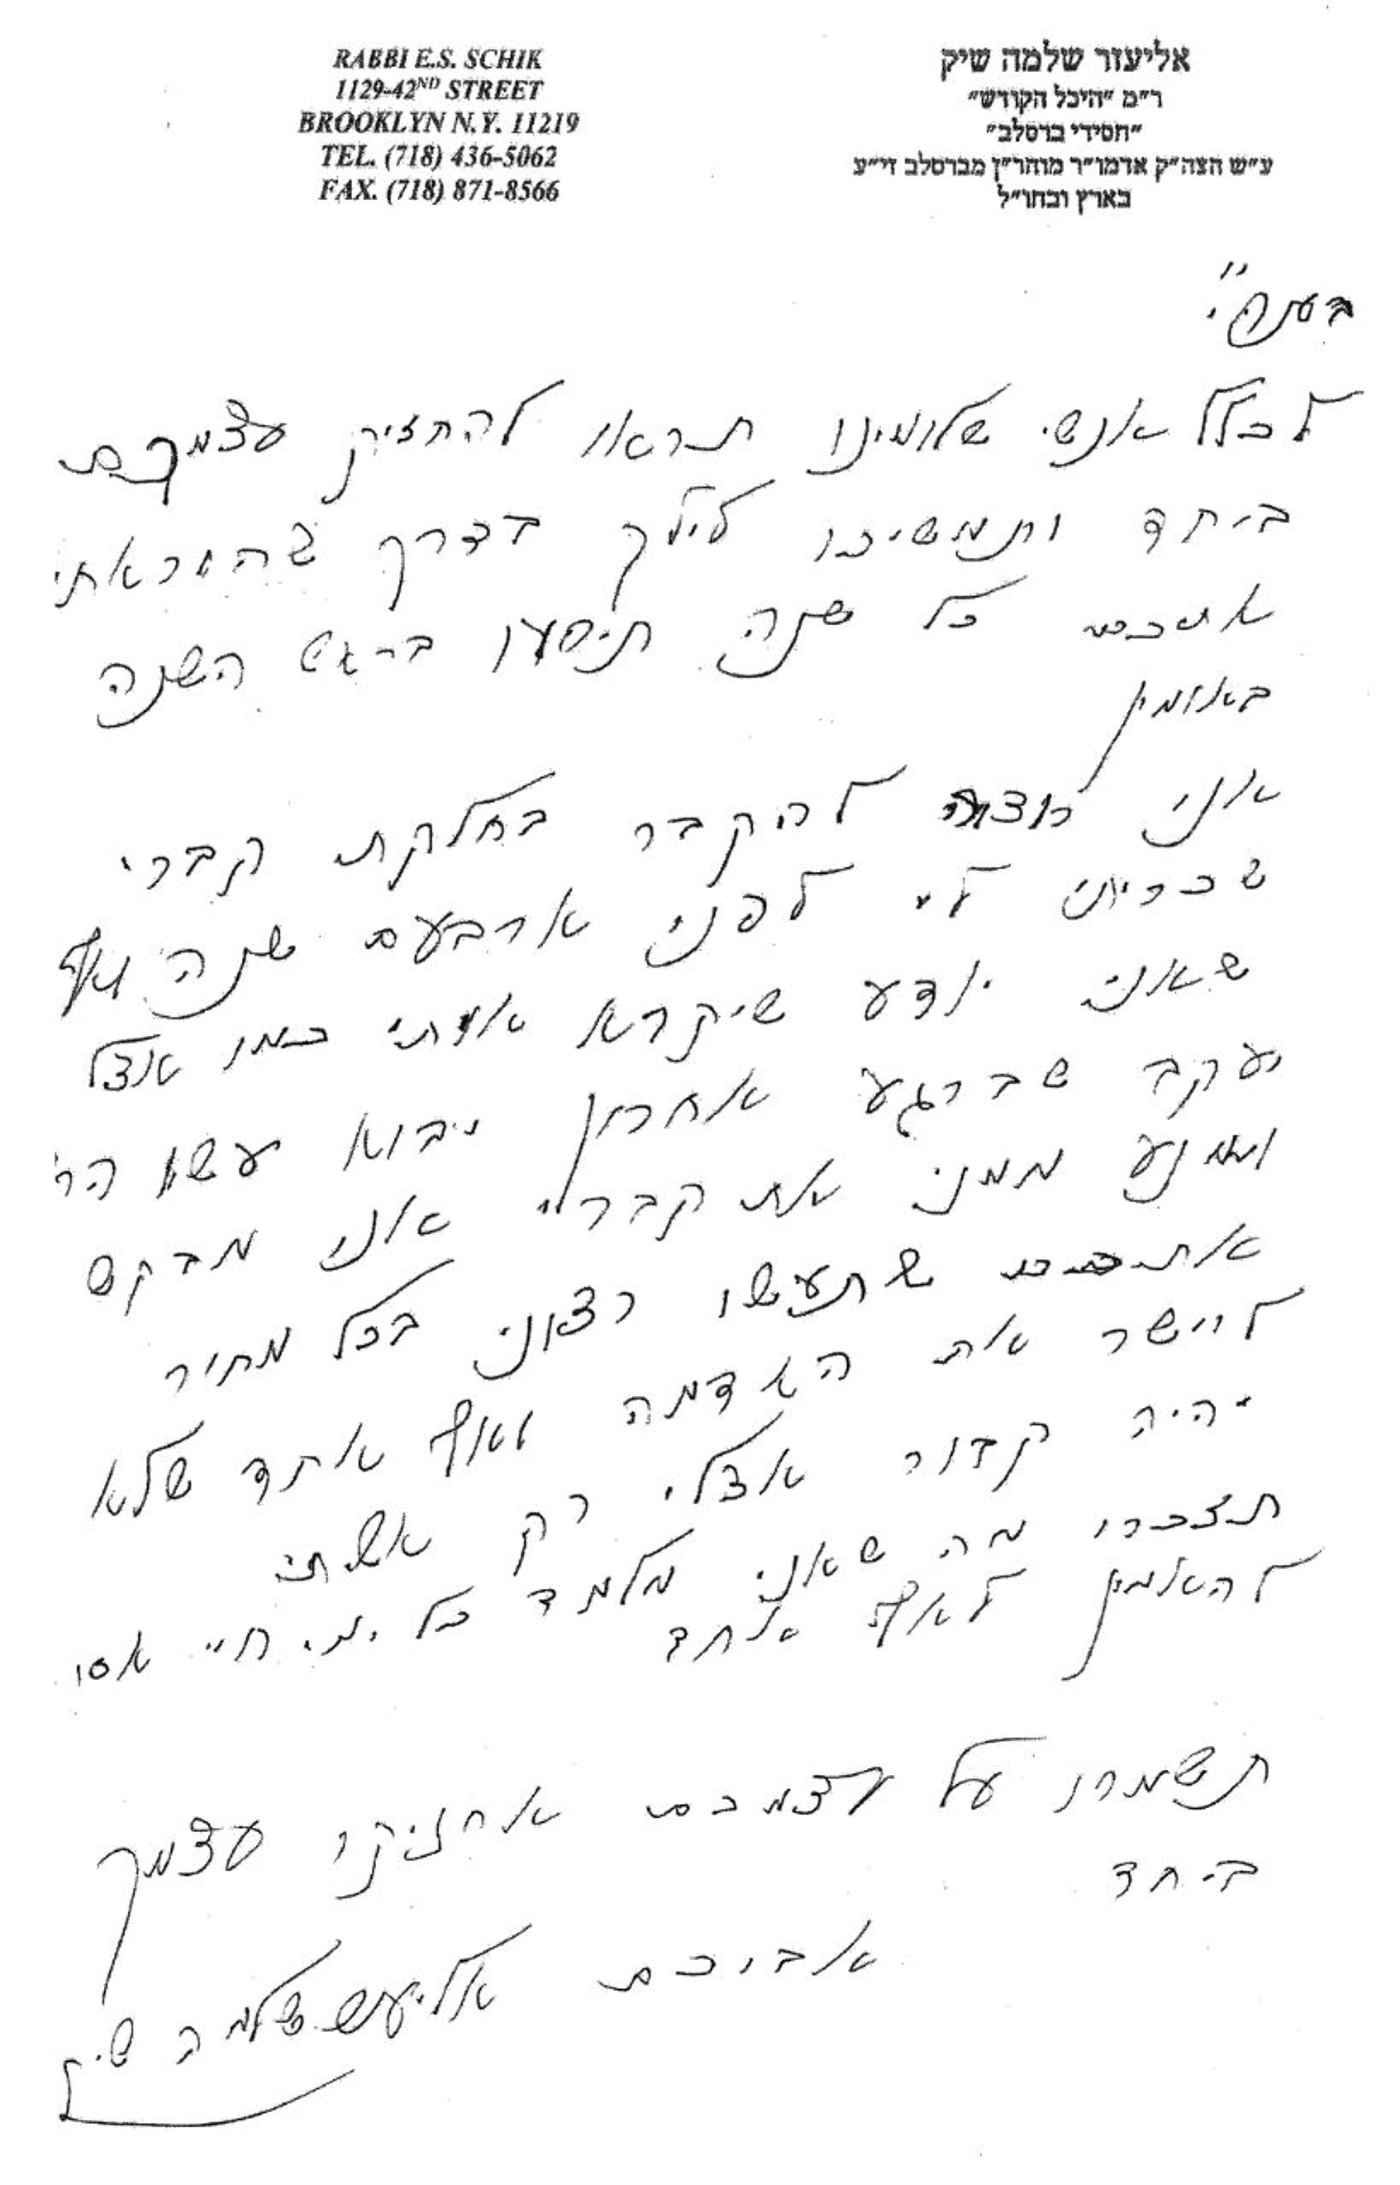 RABBI E.S. SCHIK
1129-42ND STREET
BROOKLYN N.Y. 11219
TEL. (718) 436-5062
FAX. (718) 871-8566
אליעזר שלמה שיק
ר"מ "היכל הקודש"
"חסידי ברסלב"
ע"ש הצה"ק אדמו"ר מוהר"ן מברסלב זי"ע
בארץ ובחו"ל
לכלל אנשי שלומינו תראו להחזיק עצמכם
ביחד ותמשיכו לילך בדרך שהוראתי
אתכם כל שנה תיסעו בראש השנה
באומין
אני רוצה להקבר בחלקת קברי
שכריתי לי לפני ארבעם שנה ואף
שאני יודע שיקרא אותי כמו אצל
יעקב שברגע אחרון יבוא עשו הר'
וימנע ממני את קברי אני מבקש
אתכם שתעשו רצוני בכל מחיר
ליישר את האדמה ואף אחד שלא
יהיה קבור אצלי רק אשתי
תצכרו מה שאני מלמד כל ימי חיי אסו
להאמין לאף אחד
תשמרו על עצמכם אחזיקו עצמך
ביחד
אביכם אליעזר שלמה שיק